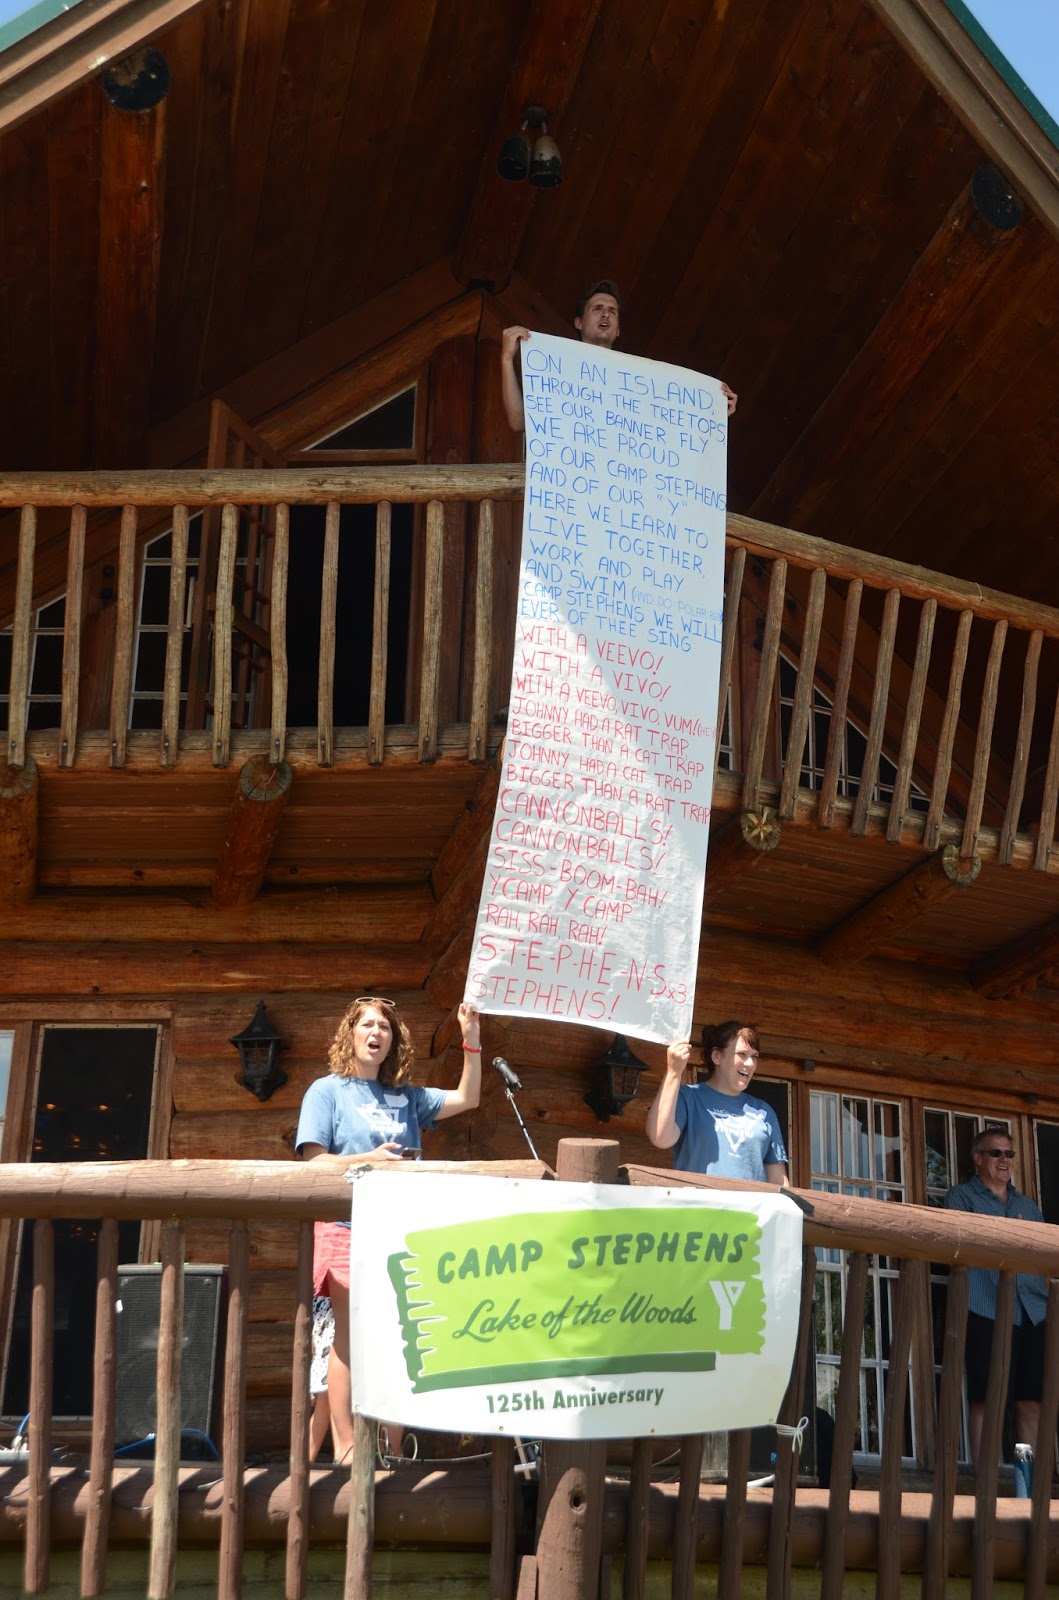 ON AN ISLAND,
THROUGH THE TREETOPS,
SEE OUR BANNER FLY
WE ARE PROUD
OF OUR CAMP STEPHENS
AND OF OUR "Y"
HERE WE LEARN TO
LIVE TOGETHER,
WORK AND PLAY
AND SWIM (AND DO POLAR
CAMP STEPHENS WE WILL
EVER OF THEE SING
WITH A VEEVO!
WITH A VIVO!
WITH A VEEVO, VIVO, VUM! (HEY)
JOHNNY HAD A RAT TRAP
BIGGER THAN A CAT TRAP
JOHNNY HAD A CAT TRAP
BIGGER THAN A RAT TRAP
CANNONBALLS!
CANNONBALLS!
SISS-BOOM-BAH!
Y CAMP, Y CAMP
RAH, RAH, RAH!
S-T-E-P-H-E-N-S x3
STEPHENS!
CAMP STEPHENS
Lake of the Woods
Y
125th Anniversary